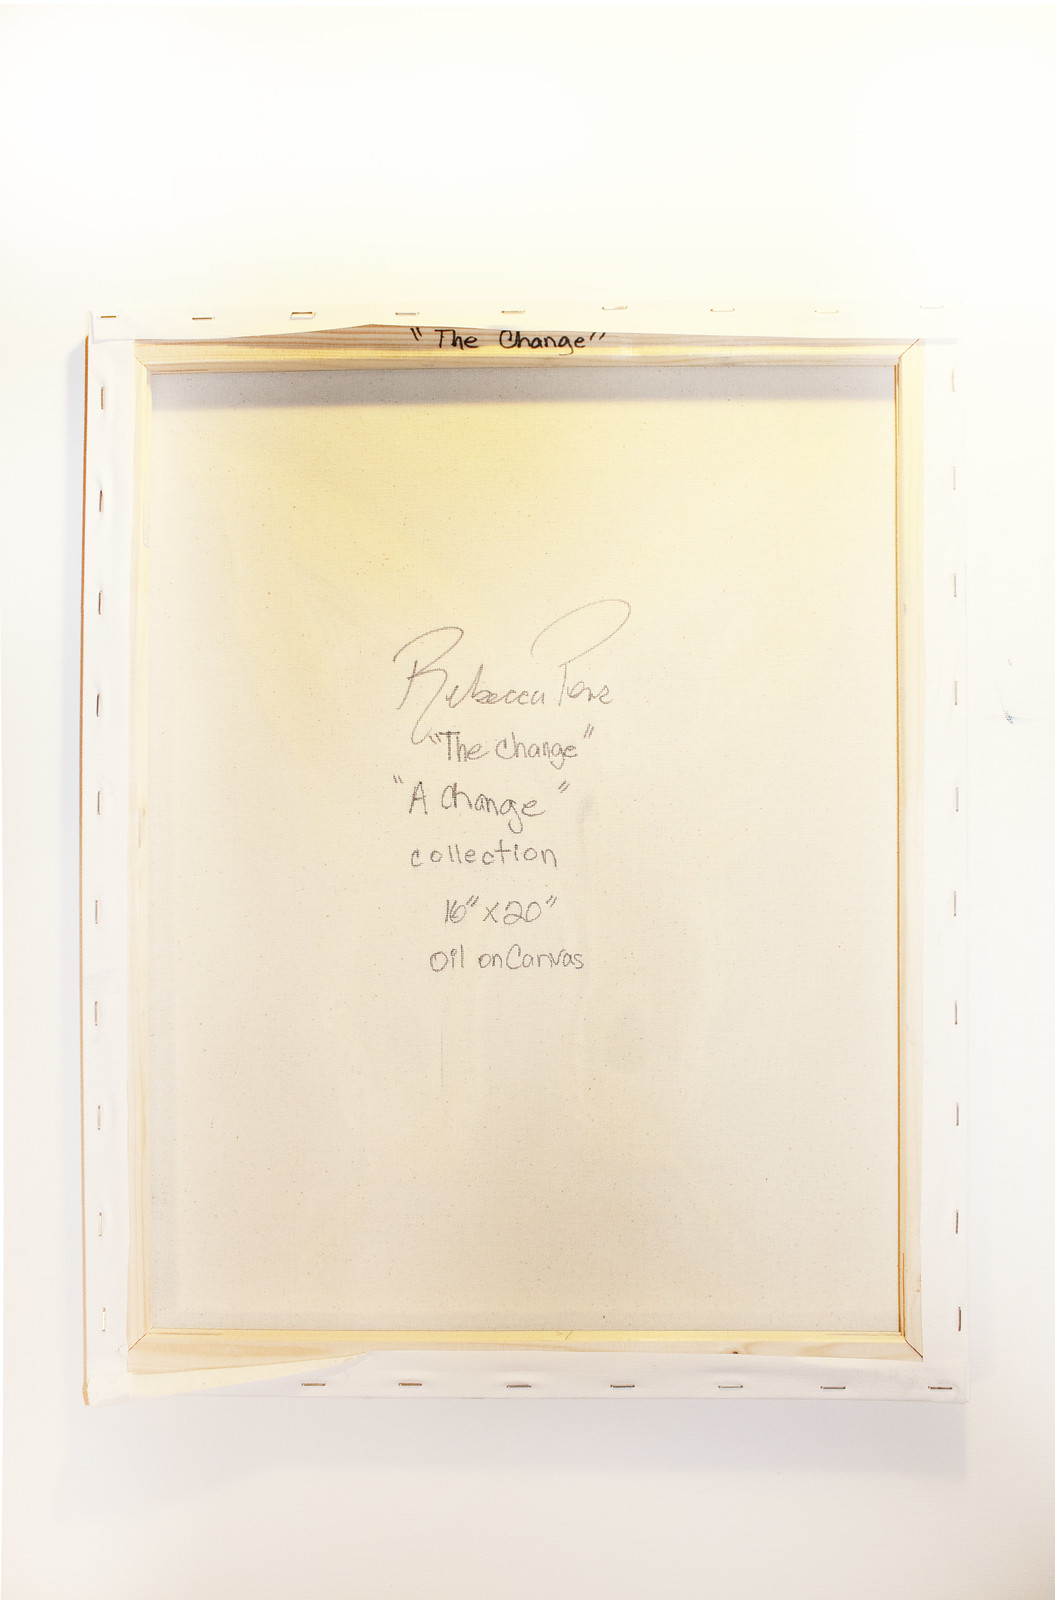 "The Change"
Rebecca
"The Change"
"A Change"
collection
16" x 20"
Oil on Canvas